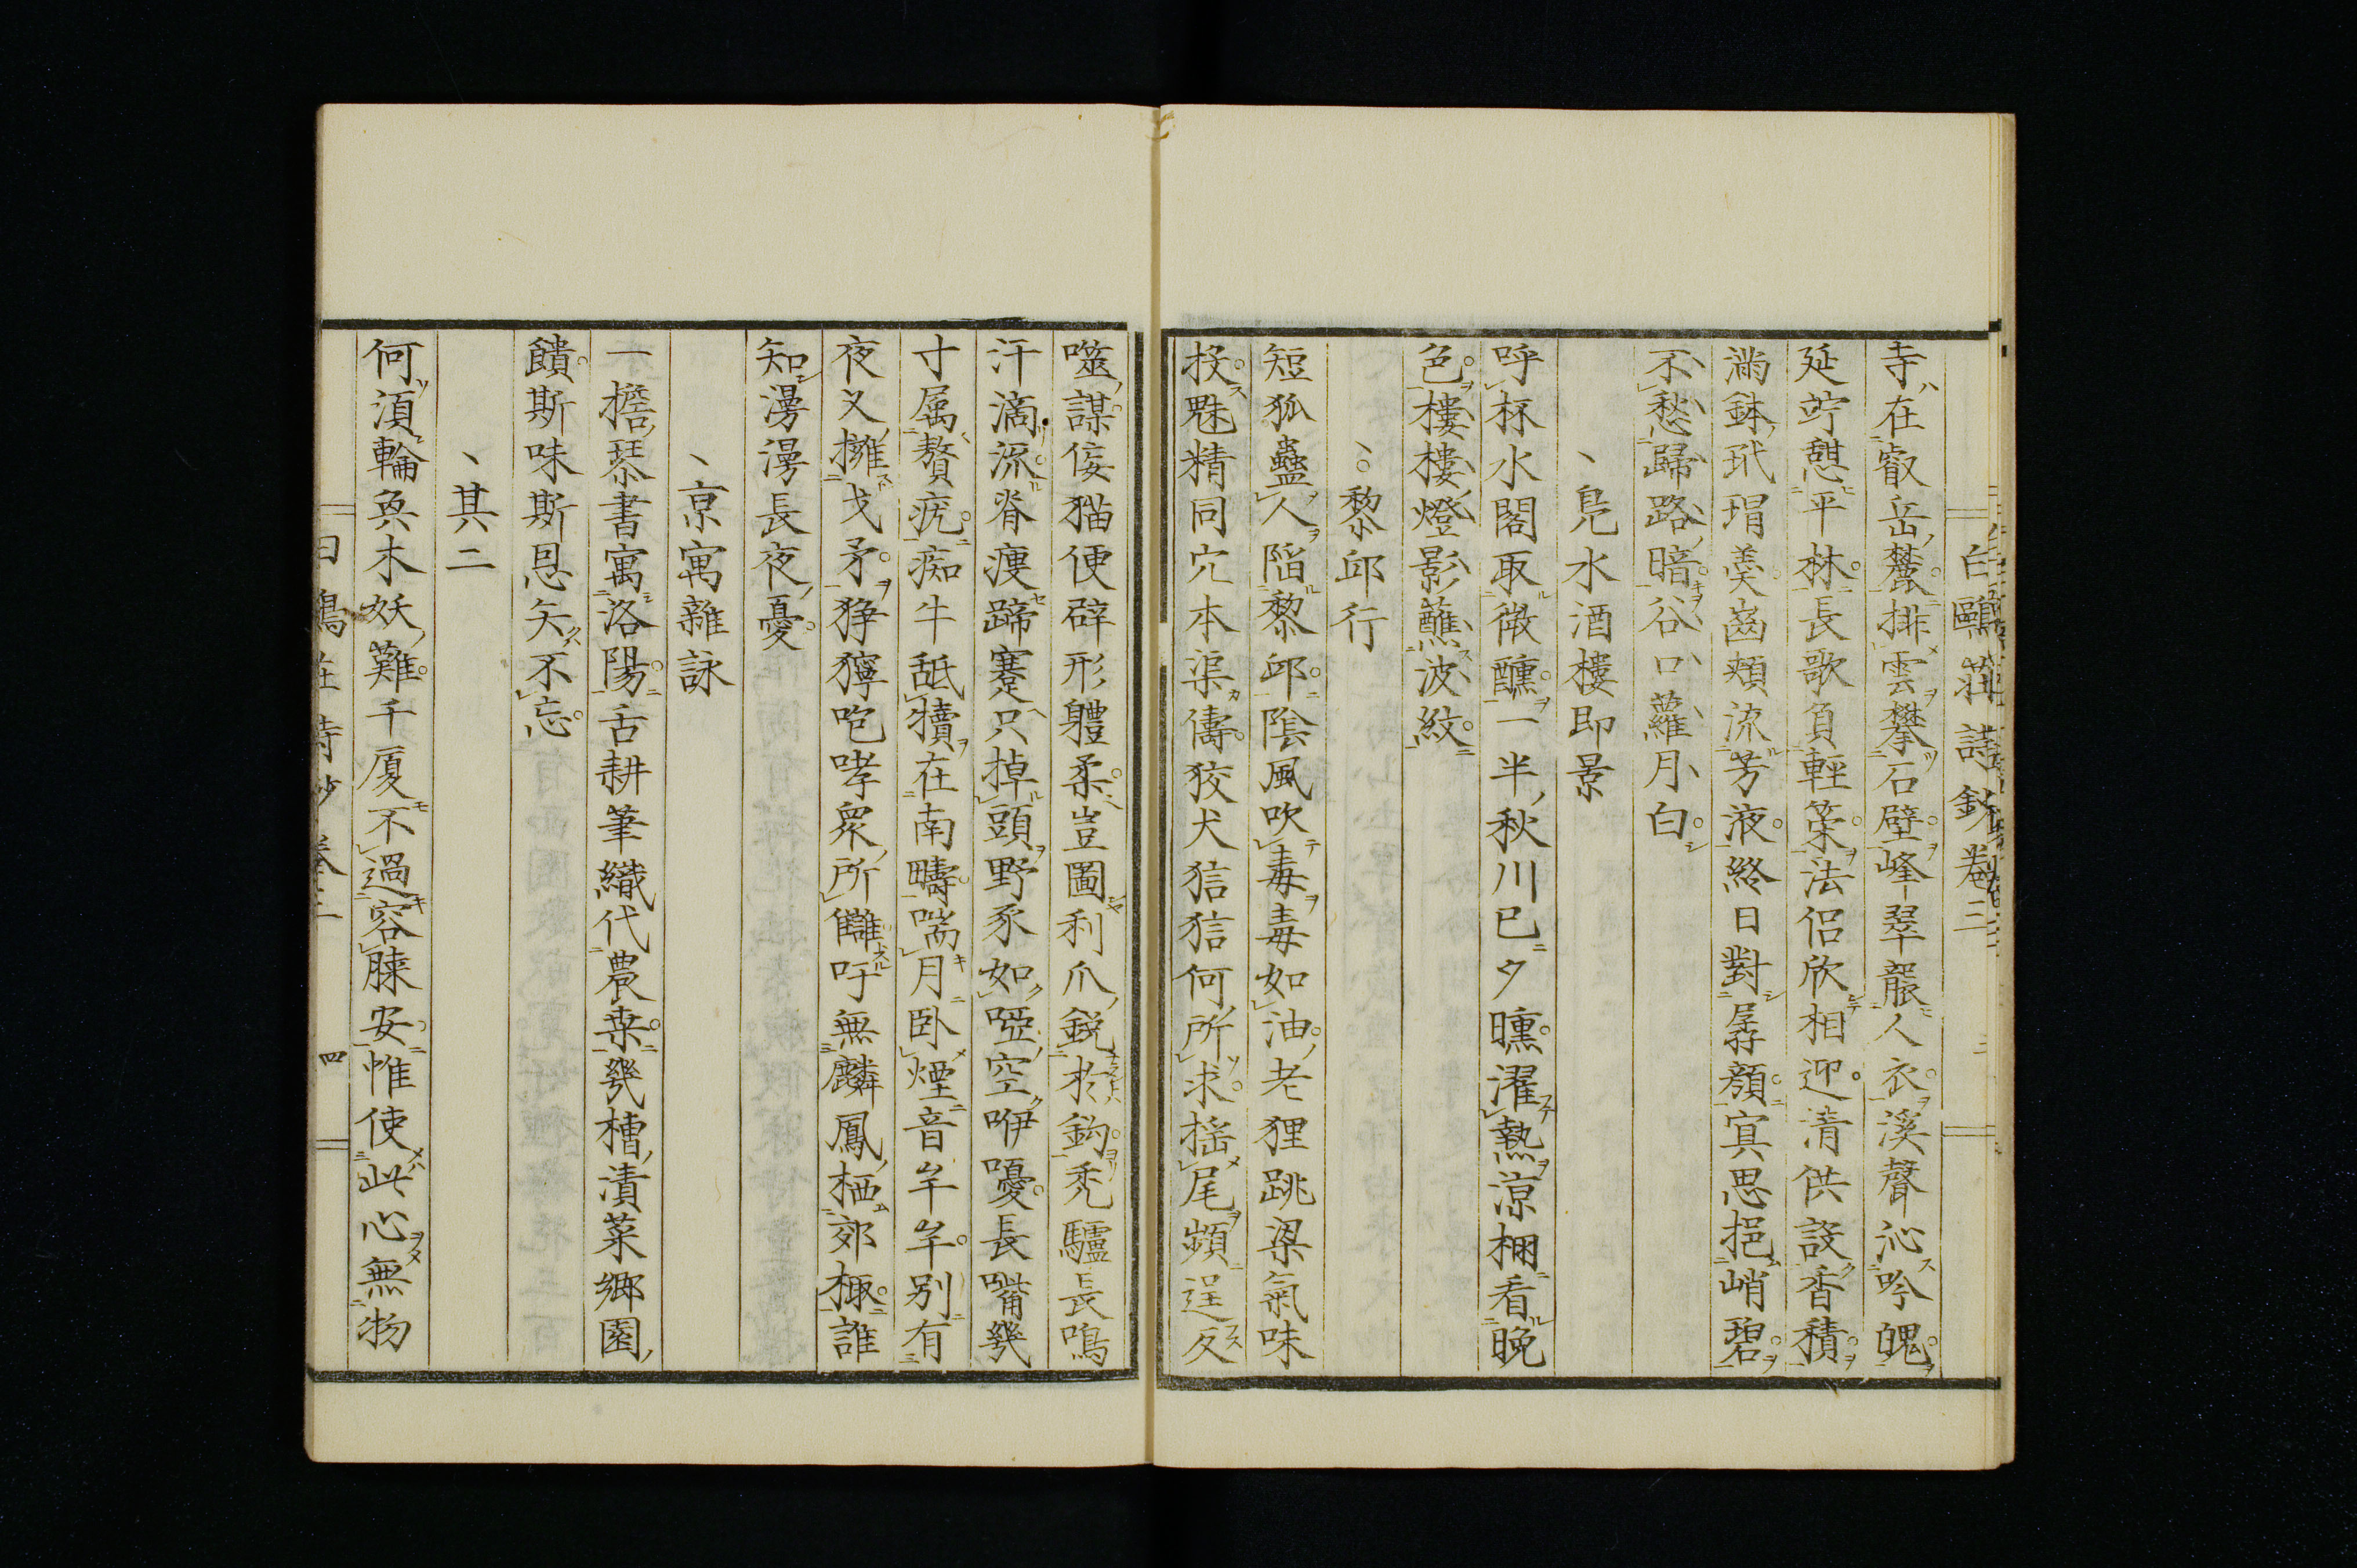 白鷗莊詩鈔卷二
寺在叡岳麓排雲攀石壁峰翠襲人衣溪聲沁吟魄
延竚憩平林長歌負輕策法侶欣相迎清供設香積
滿鉢玳瑁羹齒頰流芳液終日對孱顏寘思挹峭碧
不愁歸路暗谷口蘿月白
鳬水酒樓即景
呼杯水閣取微醺一半秋川已夕曛濯熱涼棚看晚
色樓樓燈影蘸波紋
黎邱行
短狐蠱人陷黎邱陰風吹毒毒如油老狸跳梁氣味
投魅精同穴本渠儔狡犬狺狺何所求搖尾頻逞反
噬謀佞猫便辟形軆柔豈圖利爪銳於鈎禿驢長鳴
汗滴流脊痩蹄蹇只掉頭野豕如啞空咿嚘長嘴幾
寸属贅疣痴牛舐犢在南疇喘月臥煙音牟牟別有
夜叉擁戈矛猙獰咆哮衆所讎吁無麟鳳栖郊棷誰
知漫漫長夜憂
京寓雜詠
一擔琴書寓洛陽舌耕筆織代農桒幾槽漬菜鄉園
饋斯味斯恩矢不忘
其二
何湏輪奐木妖難千厦不過容膝安惟使此心無物
白鷗莊詩鈔卷二
四